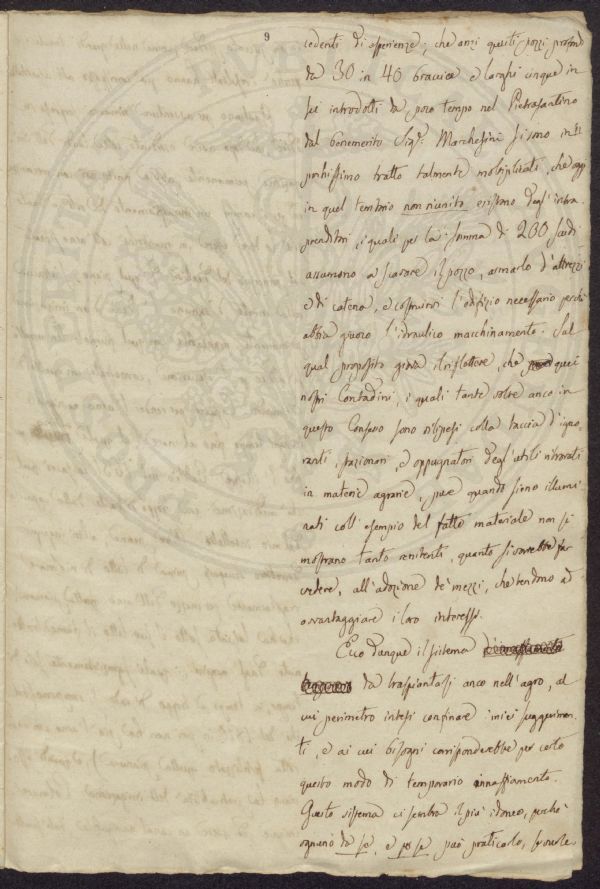 9
cedenti di esperienze; che anzi questi pozzi profondi
da 30 in 40 braccia e larghi cinque in
sei introdotti da poco tempo nel Pietrasantino
dal benemerito Sigr. Marchesini si sono in
tratto talmente moltiplicati, che oggi
in quel territorio non riunito esistono degl' intra
prenditori, i quali per la somma di 200 scudi
assumono a scavare il pozzo, armarlo d'attrezzi
e di catena, e costruirvi l'edifizio necessario perchè
abbia giuoco l'idraulico macchinamento. Sul
qual proposito giova il riflettere, che quei
nostri Contadini, i quali tante volte anco in
questo Consesso sono ripresi colla taccia d'igno
ranti, stazionari, e oppugnatori degl'utili ritrovati
in materie agrarie, pure quando sieno illumi
nati coll' esempio del fatto materiale non si
mostrano tanto renitenti, quanto si vorrebbe far
credere, all'adozione de' mezzi, che tendono ad
avvantaggiare i loro interessi.
Ecco dunque il sistema
da traspiantarsi anco nell'agro, al
cui perimetro intesi confinare i miei suggerimen
ti, e ai cui bisogni corrisponderebbe per certo
questo modo di temporario innaffiamento.
Questo sistema ci sembra il più idoneo, perchè
ognuno da se, e per se può praticarlo, senza